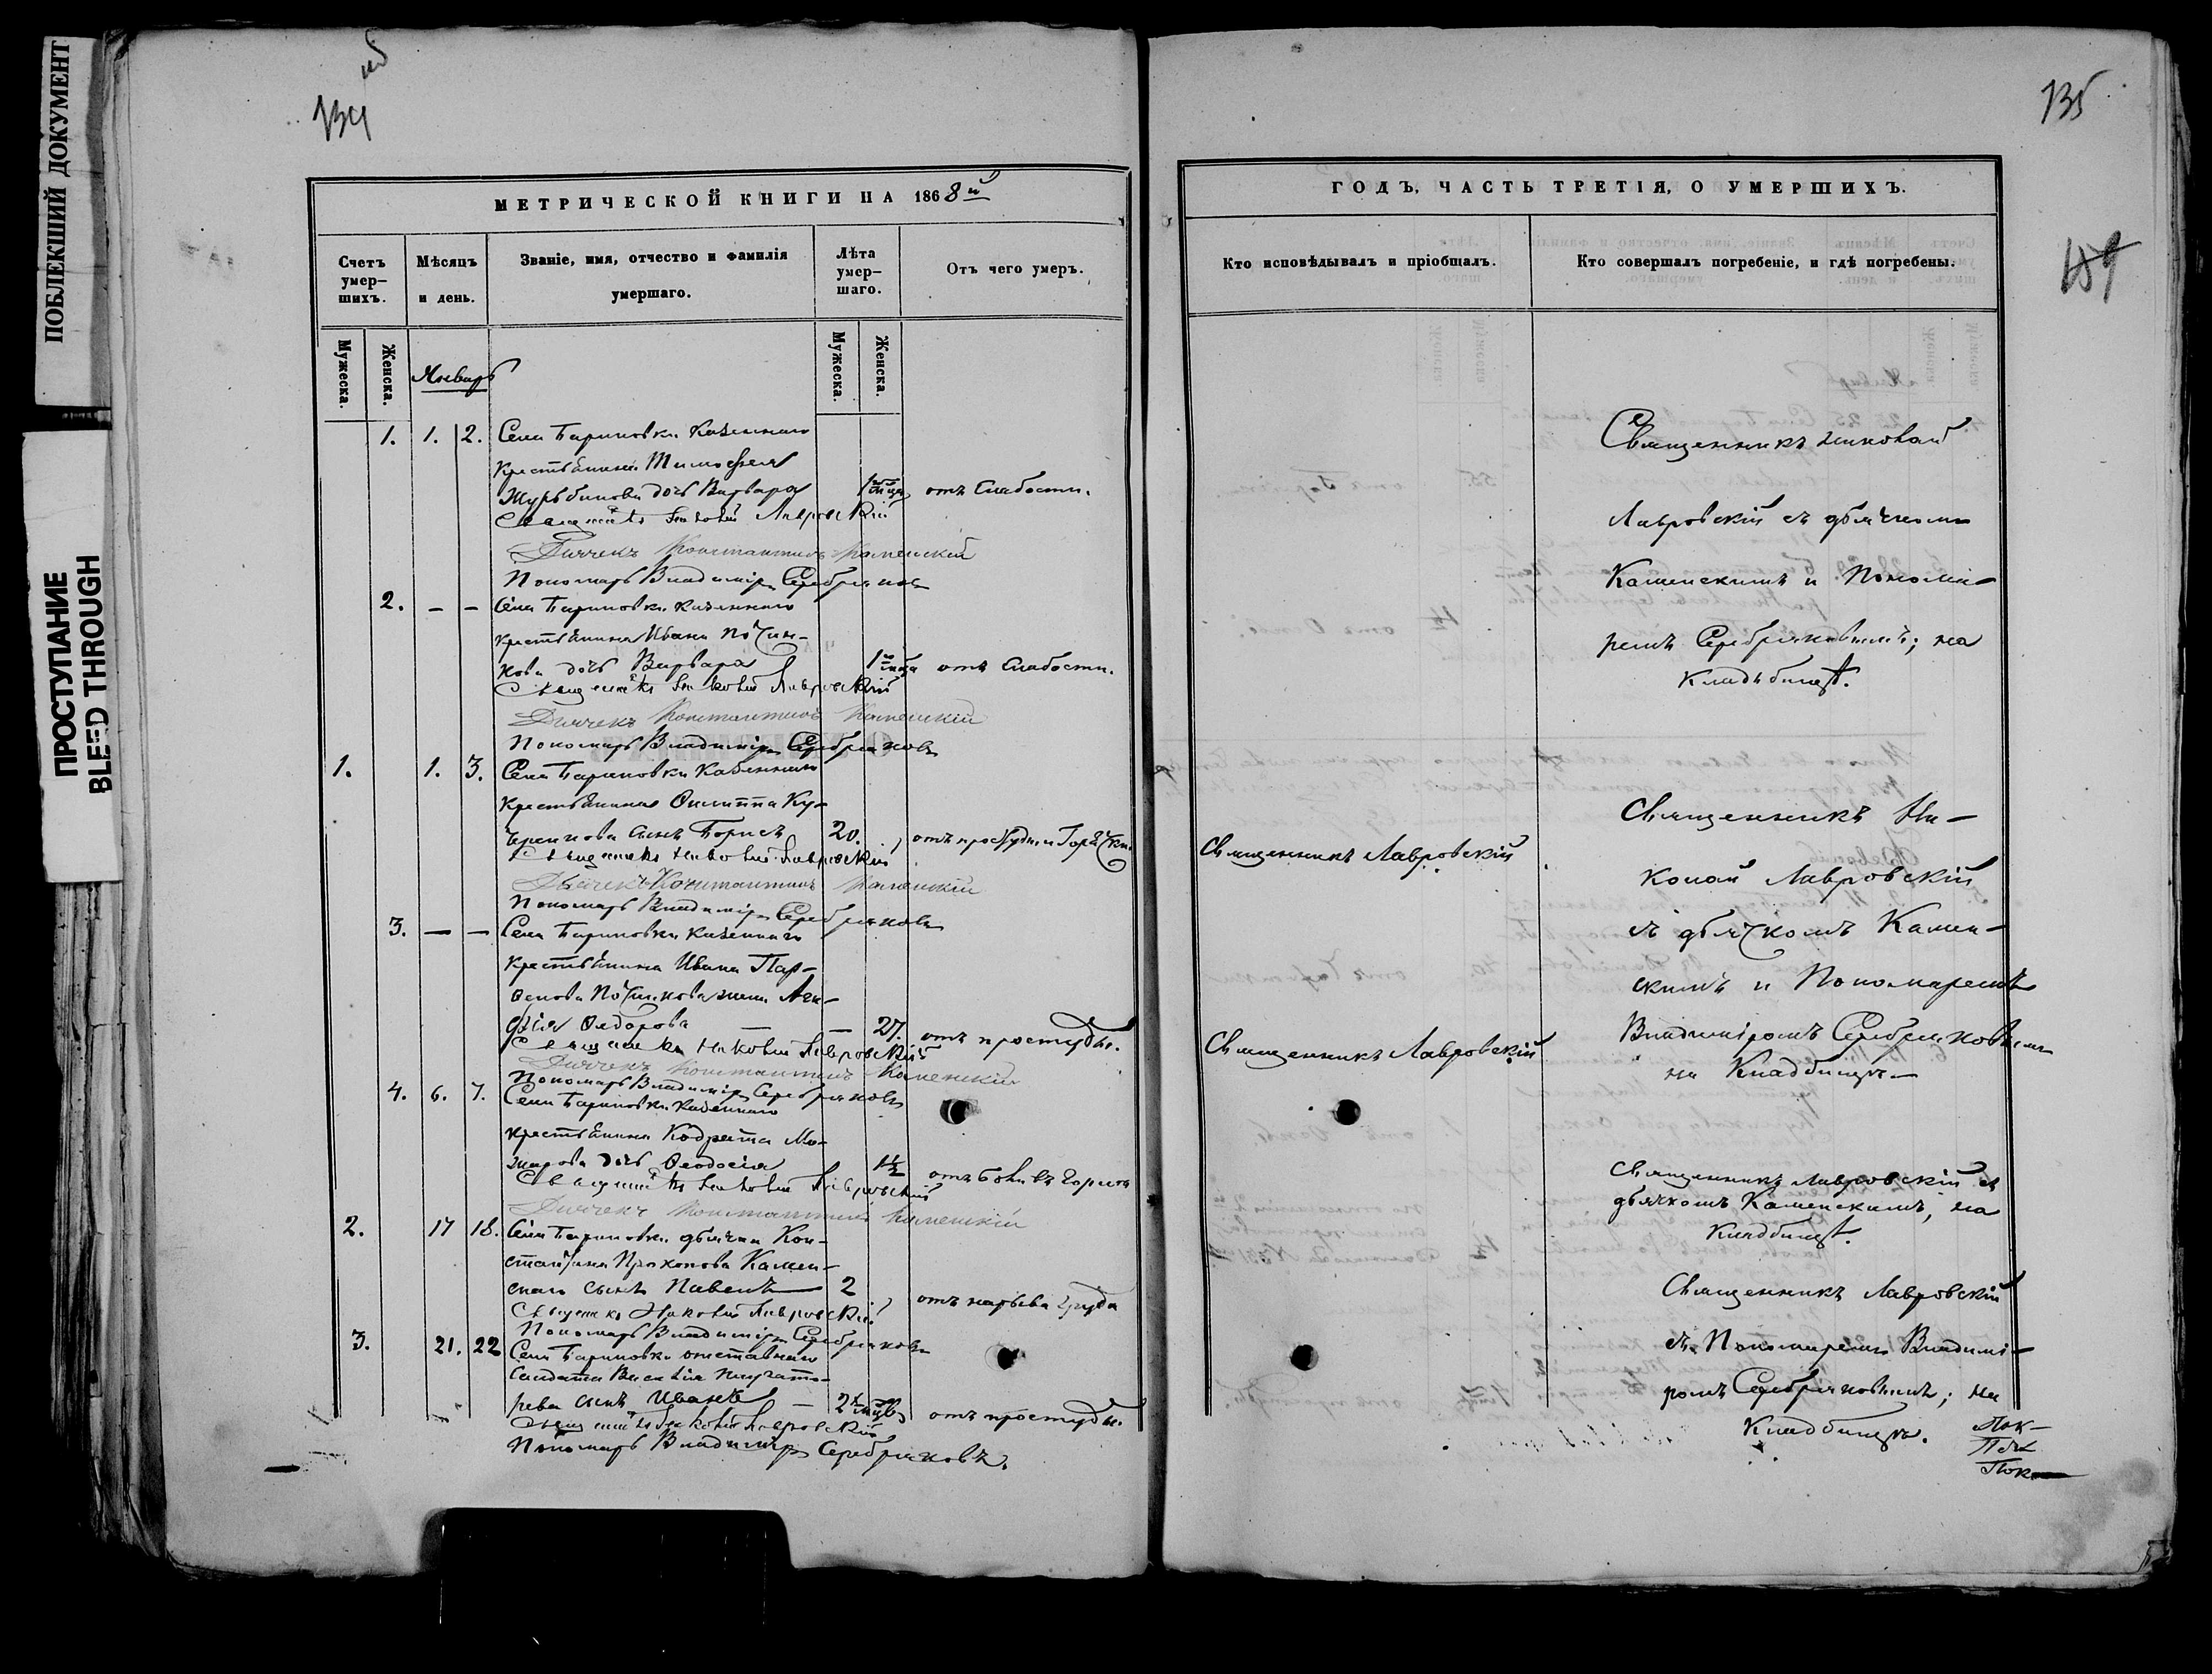 ПОБЛЕКШИЙ ДОКУМЕНТ
ПРОСТУПАНИЕ
BLEED THROUGH
134
МЕТРИЧЕСКОЙ КНИГИ НА 1868й
Счетъ умер-шихъ.
Мѣсяцъ и день.
Званіе, имя, отчество и фамилія умершаго.
Лѣта умер-шаго.
Отъ чего умеръ.
Мужеска.
Женска.
Мужеска.
Женска.
Январь
1. 1. 2. Села Бариновки казеннаго
крестьянина Тимофея
дочь Варвара отъ слабости.
Священникъ Николай Лавровскій
Дьячекъ Константинъ Каменскій
Пономарь Владиміръ Серебряковъ
2. – – Села Бариновки казеннаго
крестьянина Ивана Почин-
кова дочь Варвара отъ слабости.
Священникъ Николай Лавровскій
Дьячекъ Константинъ Каменскій
Пономарь Владиміръ Серебряковъ
1. 1. 3. Села Бариновки казеннаго
крестьянина Филиппа Ку-
сынъ Борисъ 20. отъ простуды и горячки
Священникъ Николай Лавровскій
Дьячекъ Константинъ Каменскій
Пономарь Владиміръ Серебряковъ
3. – – Села Бариновки казеннаго
крестьянина Ивана Пар-
фенова Починкова жена Ага-
фія Федорова — — 27. отъ простуды.
Священникъ Николай Лавровскій
Дьячекъ Константинъ Каменскій
Пономарь Владиміръ Серебряковъ
4. 6. 7. Села Бариновки казеннаго
крестьянина Кодрата Ма-
жарова дочь Феодосія 1½ отъ боли въ горлѣ
Священникъ Николай Лавровскій
Дьячекъ Константинъ Каменскій
2. 17 18. Села Бариновки дьячка Кон-
стантина Прохорова Камен-
скаго сынъ Павелъ — 2 отъ нарыва
Священникъ Николай Лавровскій
Пономарь Владиміръ Серебряковъ
3. 21. 22 Села Бариновки отставнаго
солдата Василія
рева сынъ Иванъ — 2 отъ простуды.
Священникъ Николай Лавровскій
Пономарь Владиміръ Серебряковъ.
135
ГОДЪ, ЧАСТЬ ТРЕТІЯ, О УМЕРШИХЪ.
Кто исповѣдывалъ и пріобщалъ.
Кто совершалъ погребеніе, и гдѣ погребены.
Священникъ Николай
Лавровскій съ дьячкомъ
Каменскимъ и Понома-
ремъ Серебряковымъ; на
Кладьбищѣ.
Священникъ Ни-
Священникъ Лавровскій
колай Лавровскій
съ дьячкомъ Камен-
скимъ и Пономаремъ
Священникъ Лавровскій
Владиміромъ Серебряковымъ
на Кладбищѣ—
Священникъ Лавровскій съ
дьячкомъ Каменскимъ, на
Кладбищѣ.
Священникъ Лавровскій
съ Пономаремъ Владимі-
ромъ Серебряковымъ; на
Кладбищѣ.